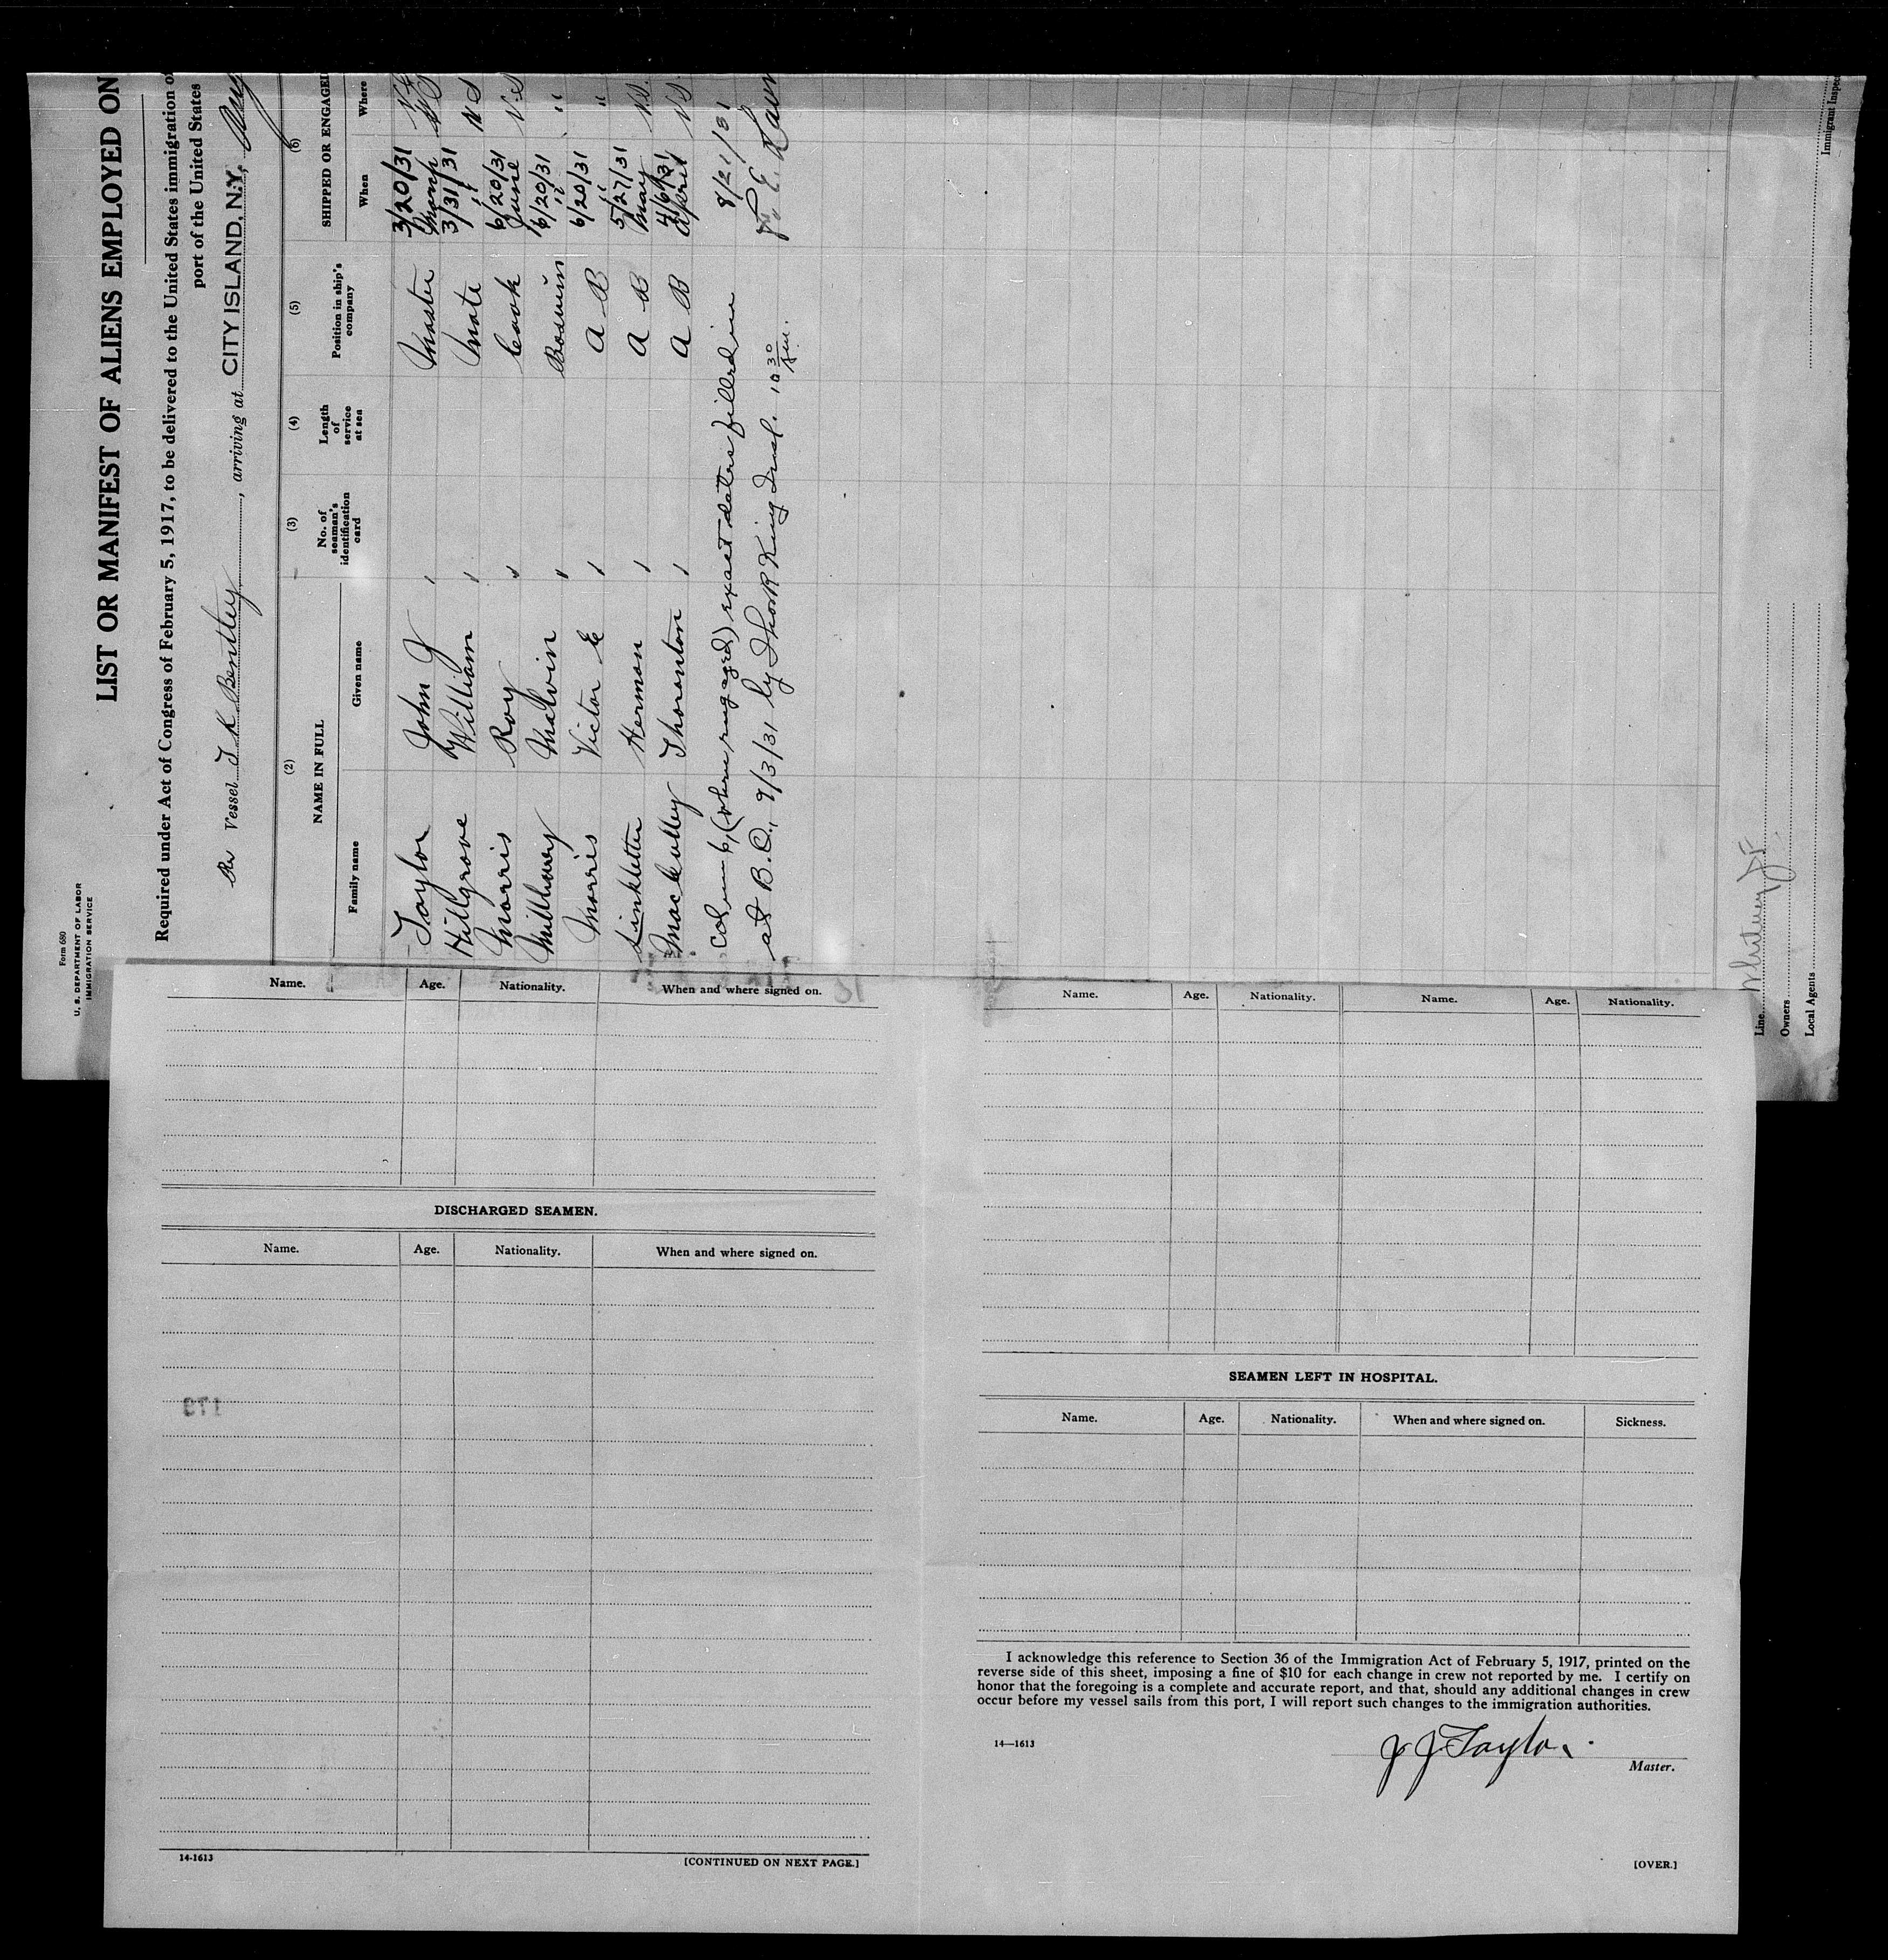 Form 680
U. S. DEPARTMENT OF LABOR
IMMIGRATION SERVICE
LIST OR MANIFEST OF ALIENS EMPLOYED ON
Required under Act of Congress of February 5, 1917, to be delivered to the United States immigration o
port of the United States
Vessel T K Bentley, arriving at CITY ISLAND, N.Y., Aug
(2) (3) (4) (5) (6)
NAME IN FULL
Family name Given name
No. of seaman's identification card
Length of service at sea
Position in ship's company
SHIPPED OR ENGAGED
When Where
Taylor John J Master 3/20/31 March NS
Hillgrove William Mate 3/31/31 " NS
Morris Roy Cook 6/20/31 June NS
Melvin Bosuin 6/20/31 " "
Morris Victor E A B 6/20/31 " "
Linkletter Hermon A B 5/27/31 May NS
MacCulley Thoronton A B 4/6/31 April NS
Column 6, (when engaged) exact dates filled in 8/21/31
at B.O., 9/3/31 by King Insd. 10 30
Line
Owners
Local Agents
Immigrant Inspec
Name. Age. Nationality. When and where signed on.
Name. Age. Nationality. Name. Age. Nationality.
DISCHARGED SEAMEN.
Name. Age. Nationality. When and where signed on.
14-1613
[CONTINUED ON NEXT PAGE.]
SEAMEN LEFT IN HOSPITAL.
Name. Age. Nationality. When and where signed on. Sickness.
I acknowledge this reference to Section 36 of the Immigration Act of February 5, 1917, printed on the
reverse side of this sheet, imposing a fine of $10 for each change in crew not reported by me. I certify on
honor that the foregoing is a complete and accurate report, and that, should any additional changes in crew
occur before my vessel sails from this port, I will report such changes to the immigration authorities.
14—1613
J J Taylor
Master.
[OVER.]